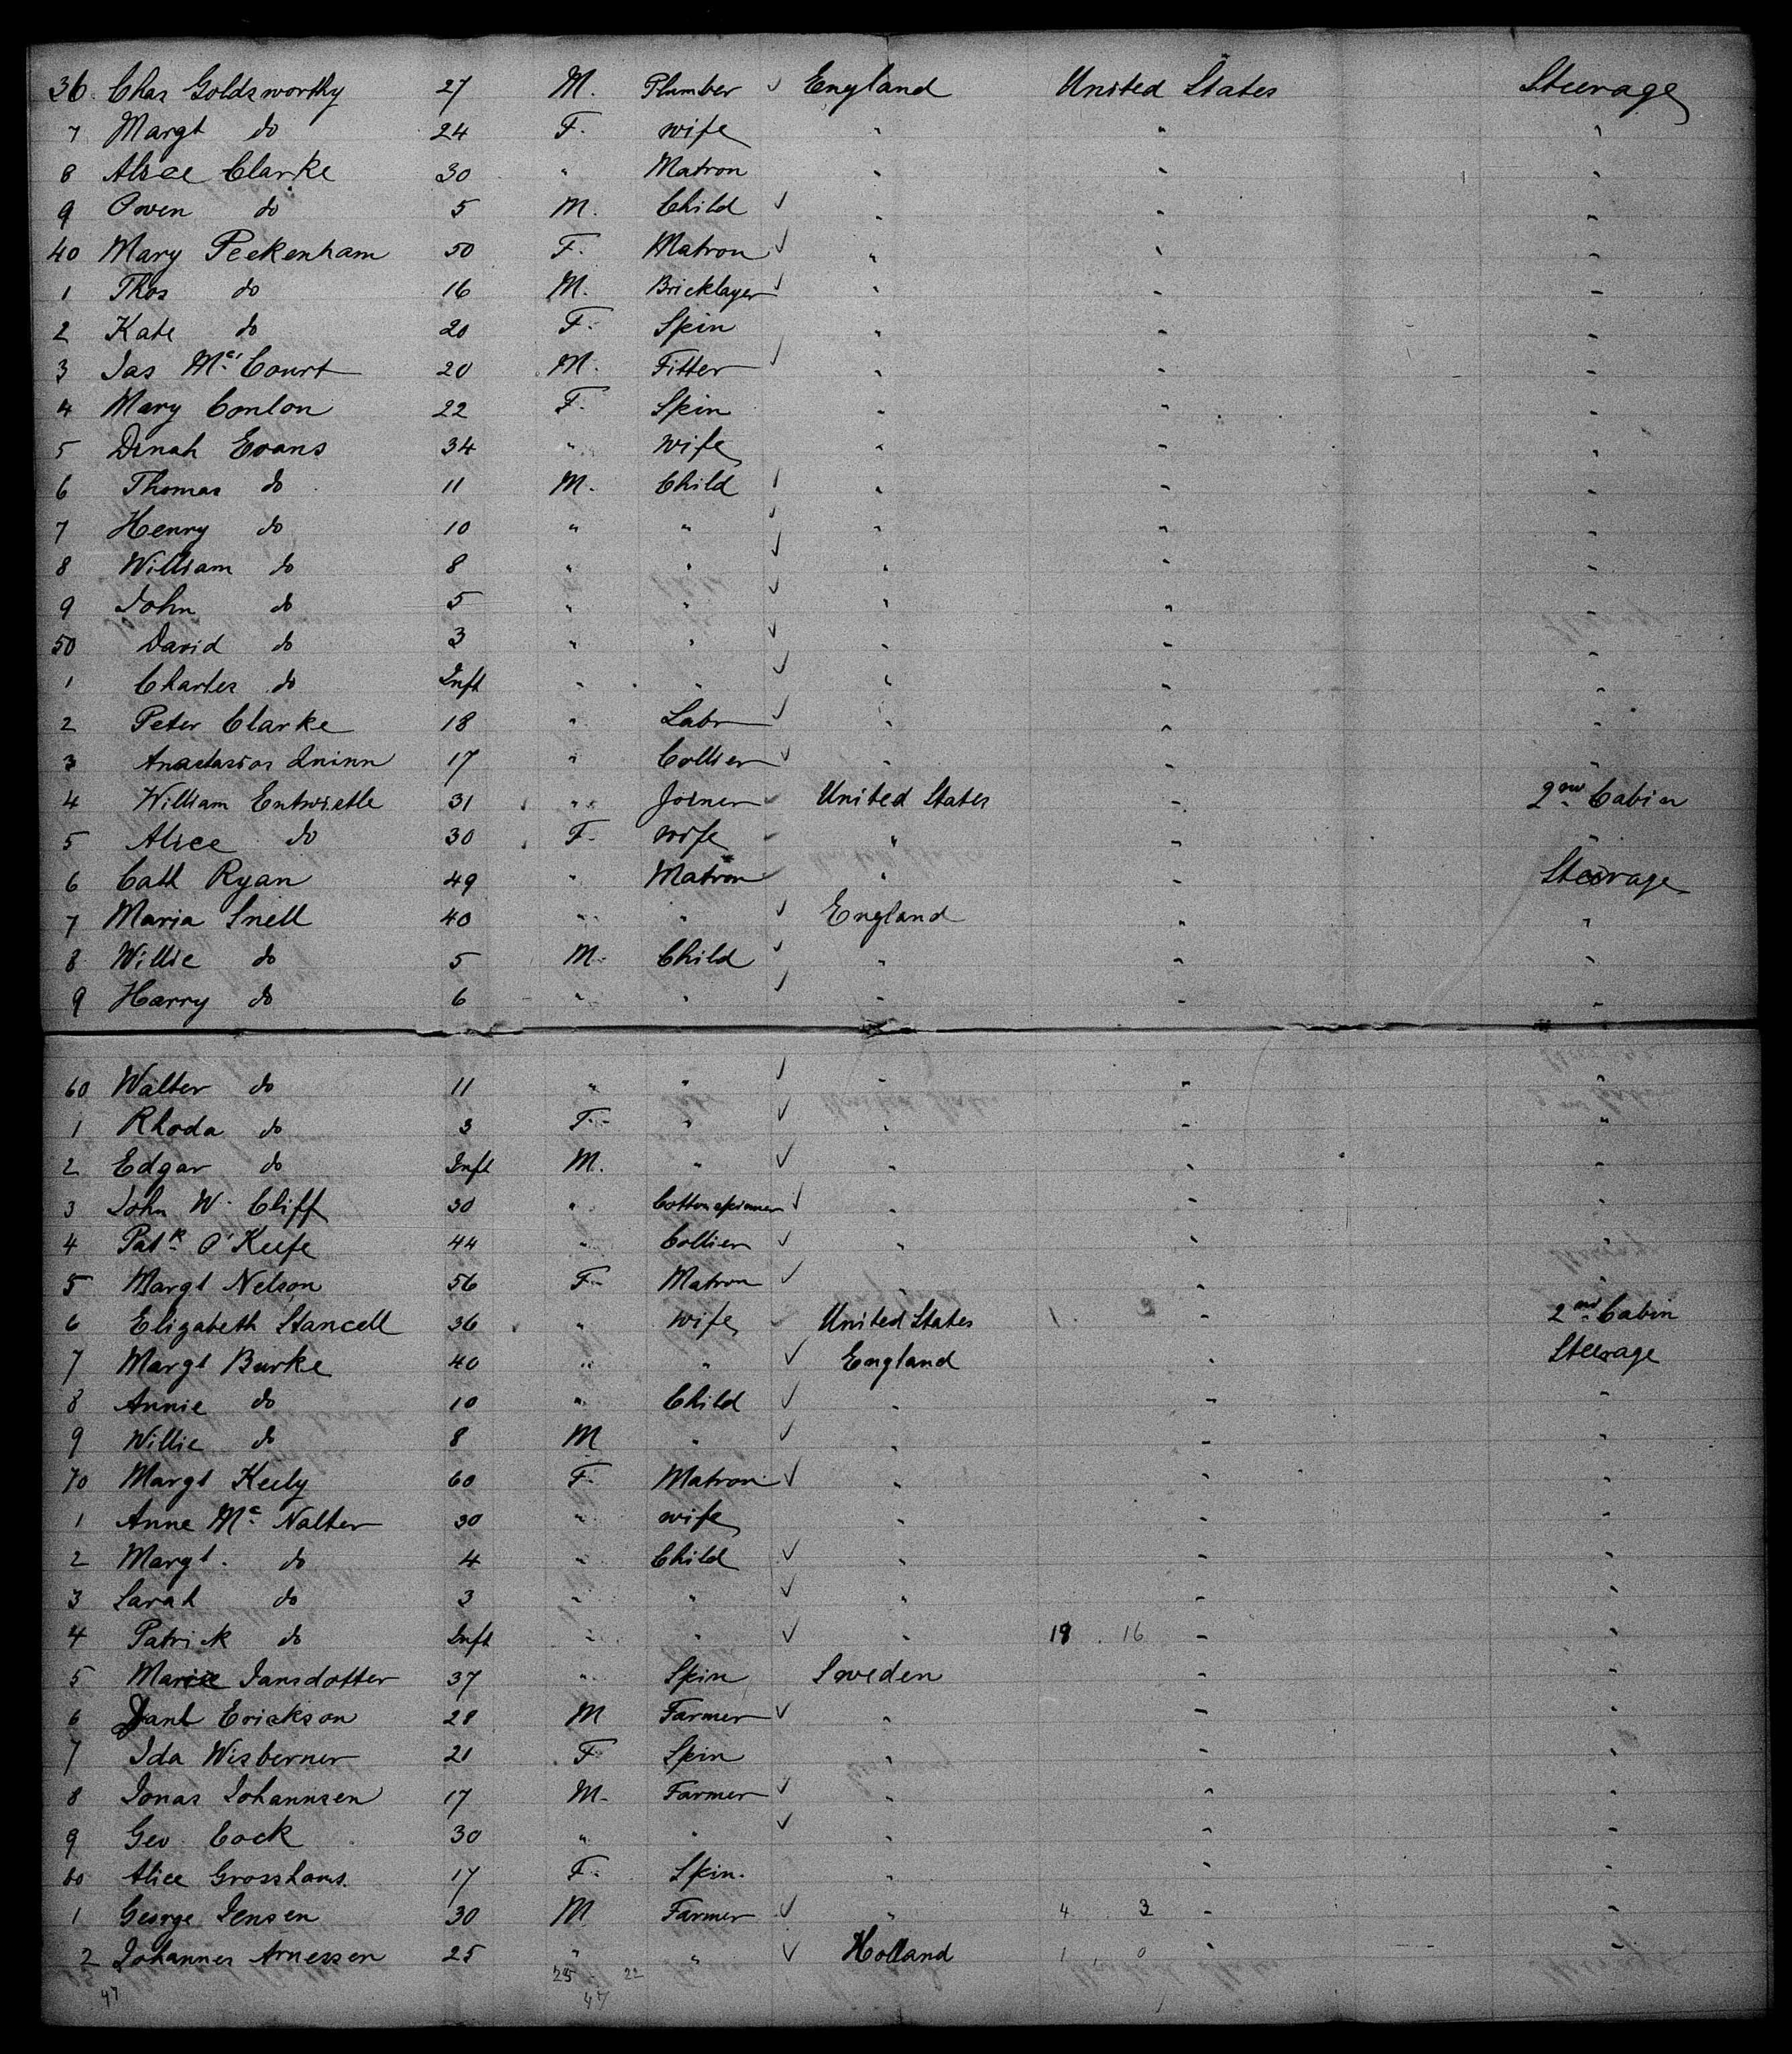 36. Chas Goldsworthy 27 M. Plumber ✓ England United States Steerage
7 Margt do 24 F. wife " " "
8 Alice Clarke 30 " Matron " " "
9 Owen do 5 M. Child ✓ " " "
40 Mary Peckenham 50 F. Matron ✓ " " "
1 Thos do 16 M. Bricklayer ✓ " " "
2 Kate do 20 F. Spin " " "
3 Jas Mc Court 20 M. Fitter ✓ " " "
4 Mary Conlon 22 F. Spin " " "
5 Dinah Evans 34 " wife " " "
6 Thomas do 11 M. Child ✓ " " "
7 Henry do 10 " " ✓ " " "
8 William do 8 " " ✓ " " "
9 John do 5 " " ✓ " " "
50 David do 3 " " ✓ " " "
1 Charles do Inft " " ✓ " " "
2 Peter Clarke 18 " Labr ✓ " " "
3 Anastasios Quinn 17 " Collier ✓ " " "
4 William Entwistle 31 " Joiner ✓ United States " 2nd Cabin
5 Alice do 30 F. wife ✓ " " "
6 Cath Ryan 49 " Matron ✓ " " Steerage
7 Maria Snell 40 " " ✓ England " "
8 Willie do 5 M. Child ✓ " " "
9 Harry do 6 " " ✓ " " "
60 Walter do 11 " " ✓ " " "
1 Rhoda do 3 F. " ✓ " " "
2 Edgar do Inft M. " ✓ " " "
3 John W. Cliff 30 " Cotton spinner ✓ " " "
4 Patk O'Keefe 44 " Collier ✓ " " "
5 Margt Nelson 56 F. Matron ✓ " " "
6 Elizabeth Stancell 36 " wife ✓ United States 1 . 3 " 2nd Cabin
7 Margt Burke 40 " " ✓ England " Steerage
8 Annie do 10 " Child ✓ " " "
9 Willie do 8 M " ✓ " " "
70 Margt Keely 60 F. Matron ✓ " " "
1 Anne Mc Nalter 30 " wife " " "
2 Margt. do 4 " Child ✓ " " "
3 Sarah do 3 " " ✓ " " "
4 Patrick do Inft " " ✓ " 19 . 16 " "
5 Marie Jansdotter 37 " Spin Sweden " "
6 Danl Erickson 28 M Farmer ✓ " " "
7 Ida Wisberner 21 F. Spin " " "
8 Jonas Johannsen 17 M. Farmer ✓ " " "
9 Geo. Cock 30 " " ✓ " " "
80 Alice Grosshams. 17 F. Spin. " " "
1 George Jensen 30 M Farmer ✓ " 4 . 3 " "
2 Johannes Arnessen 25 " " ✓ Holland 1 . 0 " "
25 22
47 47